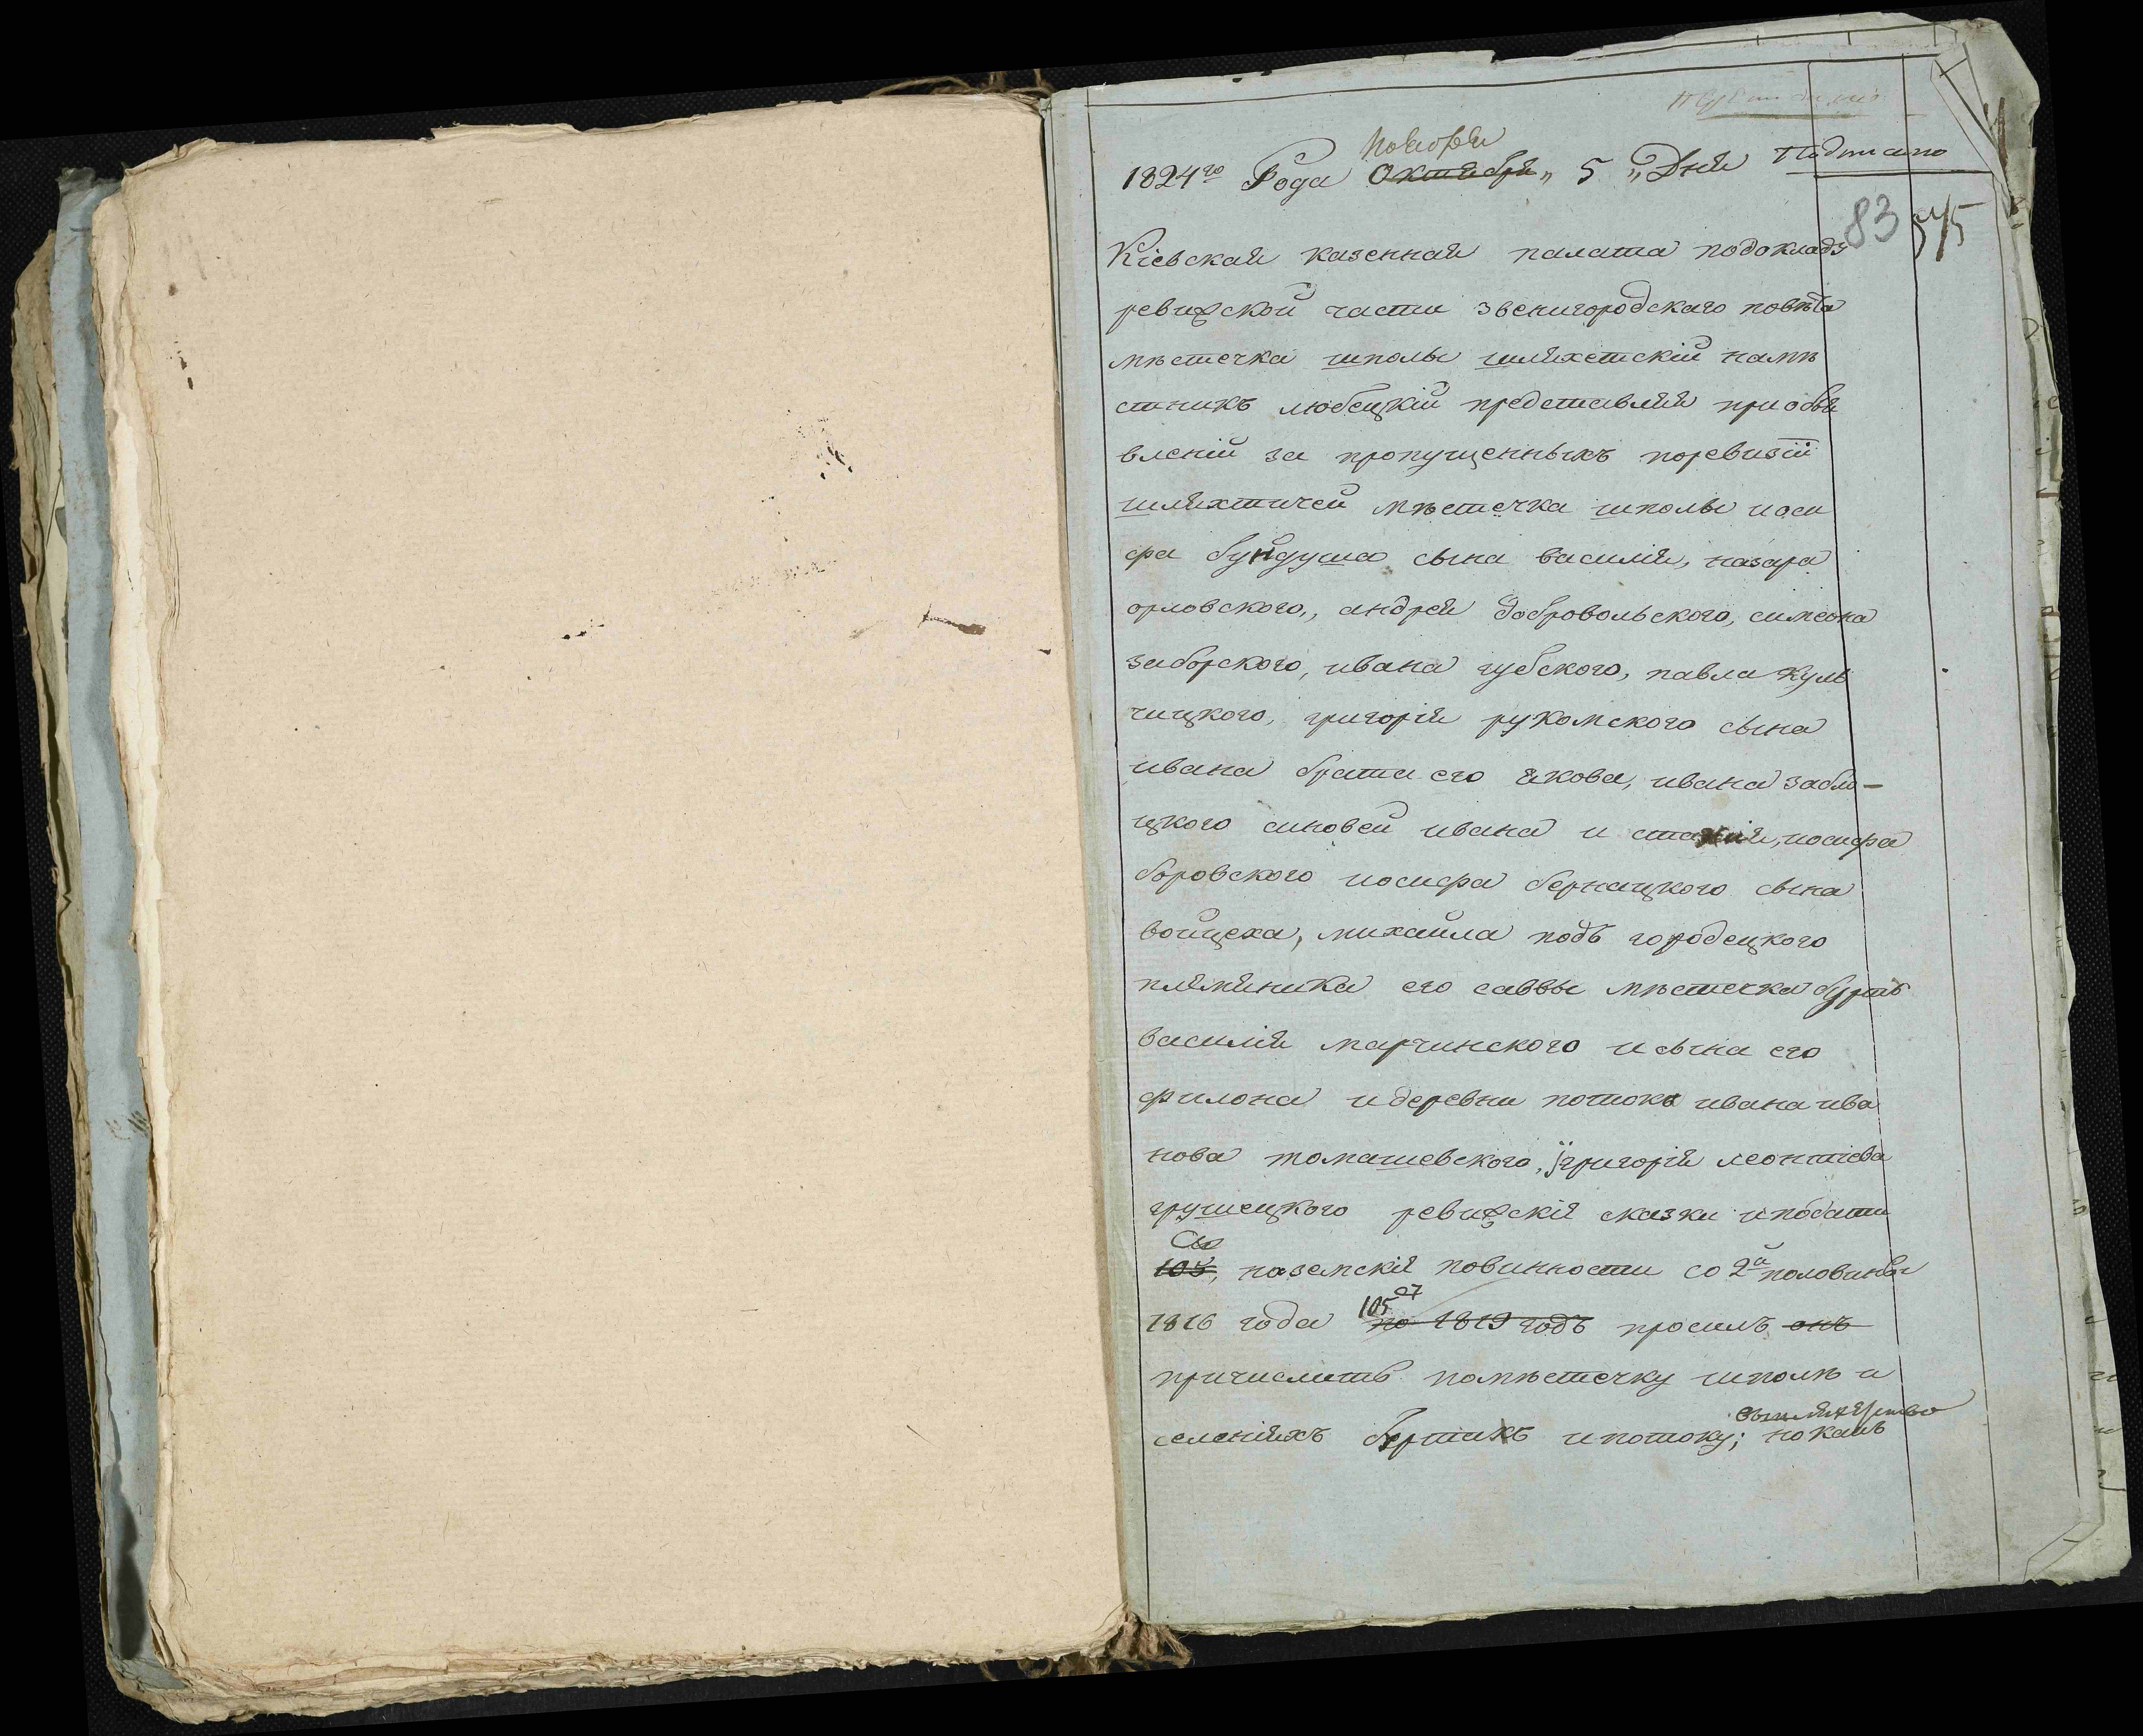 Ноября
1824го Года Октября „ 5 „ Дня Подписано
83 545
Кіевская казенная палата подокладу
ревизской части звенигородскаго повѣта
мѣстечка шполы шляхетскій намѣ
стникъ любецкій представляя при объя
вленій за пропущенныхъ поревизіи
шляхтичей мѣстечка шполы иоси
фа бундуша сына василія, назара
орловского, андрея добровольского, симеона
заборского, ивана губского, павла куль
чицкого, григорія рукомского сына
ивана брата его якова, ивана забло-
цкого синовей ивана и иосифа
боровского иосифа бернацкого сына
войцеха, михайла подъ городецкого
пляминика его саввы мѣстечка буртъ
василія марчинского и сына его
филона и деревни потока ивана ива
нова томашевского, григорія леонтіева
грушецкого ревизскія сказки и подати
105, наземскія повинности со 2й половины
105
1816 года по 1819 годъ просилъ онъ
причислить помѣстечку шполѣ и
селеніяхъ буртахъ ипотоку; но какъ